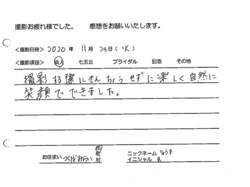 撮影お疲れ様でした。 感想をお願いいたします。
<撮影日時> 2020年 11月 29日(火)
<撮影項目> 成人 七五三 ブライダル 記念 その他
撮影する際にきんちょうせずに楽しく自然に
笑顔でできました。
お住まい つくばみらい
ニックネーム
イニシャル R